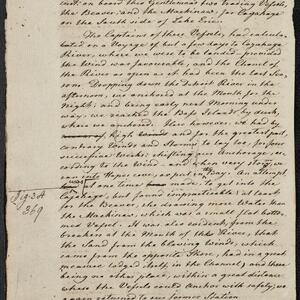 on board the Gentlemans two trading Vessels,
the Beaver, and the Mackinaw, for Cayahage
on the South side of Lake Erie.
The Captains of these Vessels, had calcu-
lated on a Voyage of but a few days to Cayahage
River, where we were to be landed, provided
the Wind was favourable, and the Chanel of
the River as open as it had been the last Sea-
son. Dropping down the Detroit River in the
afternoon, we anchored at the Mouth for the
Night; and being early next Morning under
way; we reached the Bass Islands by dusk,
where we anchored. Here however, it had by
of high Winds and for the greatest part,
contrary Winds and Storms to lay too, for four
successive Weeks; shifting our Anchorage, ac-
cording to the Wind
into Hope cove, as put
was at one time to get into the
Cayahage, but found impracticable; at least
for the Beaver; she drawing more Water than
the Mackinaw, which was a small flat bottom-
ed Vessel. It was also evident, from the
breakers at the Mouth of the River, that
the Sand from the blowing Winds, which
came from the opposite Shore, had in a great
measure lodged itself, in the Chanel; and there
being no other place, within a great distance
where the Vessels could Anchor with safety; we
again returned to our former Station
Pig. 34
369